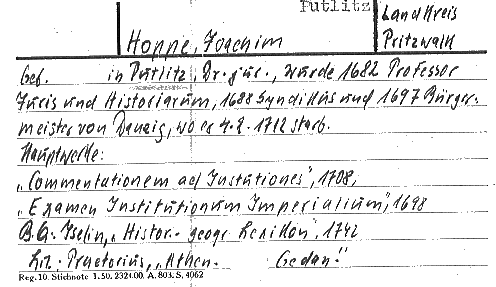 Putlitz
Landkreis
Pritzwalk
Hoppe, Joachim
Geb. in Putlitz, Dr. jur., wurde 1682 Professor
Juris und Historiarum, 1688 Syndikus und 1697 Bürger-
meister von Danzig, wo er 4.2.1712 starb.
Hauptwerke:
„Commentationem ad Instutiones", 1708,
„Examen Institutionum Imperialium", 1698
B.G. Iselin, „Histor.- geogr. Lexikon". 1742
Lit.: Praetorius, „Athen. Gedan."
Reg. 10. Stichnote 1. 50. 2321.00. A. 803. S. 4062